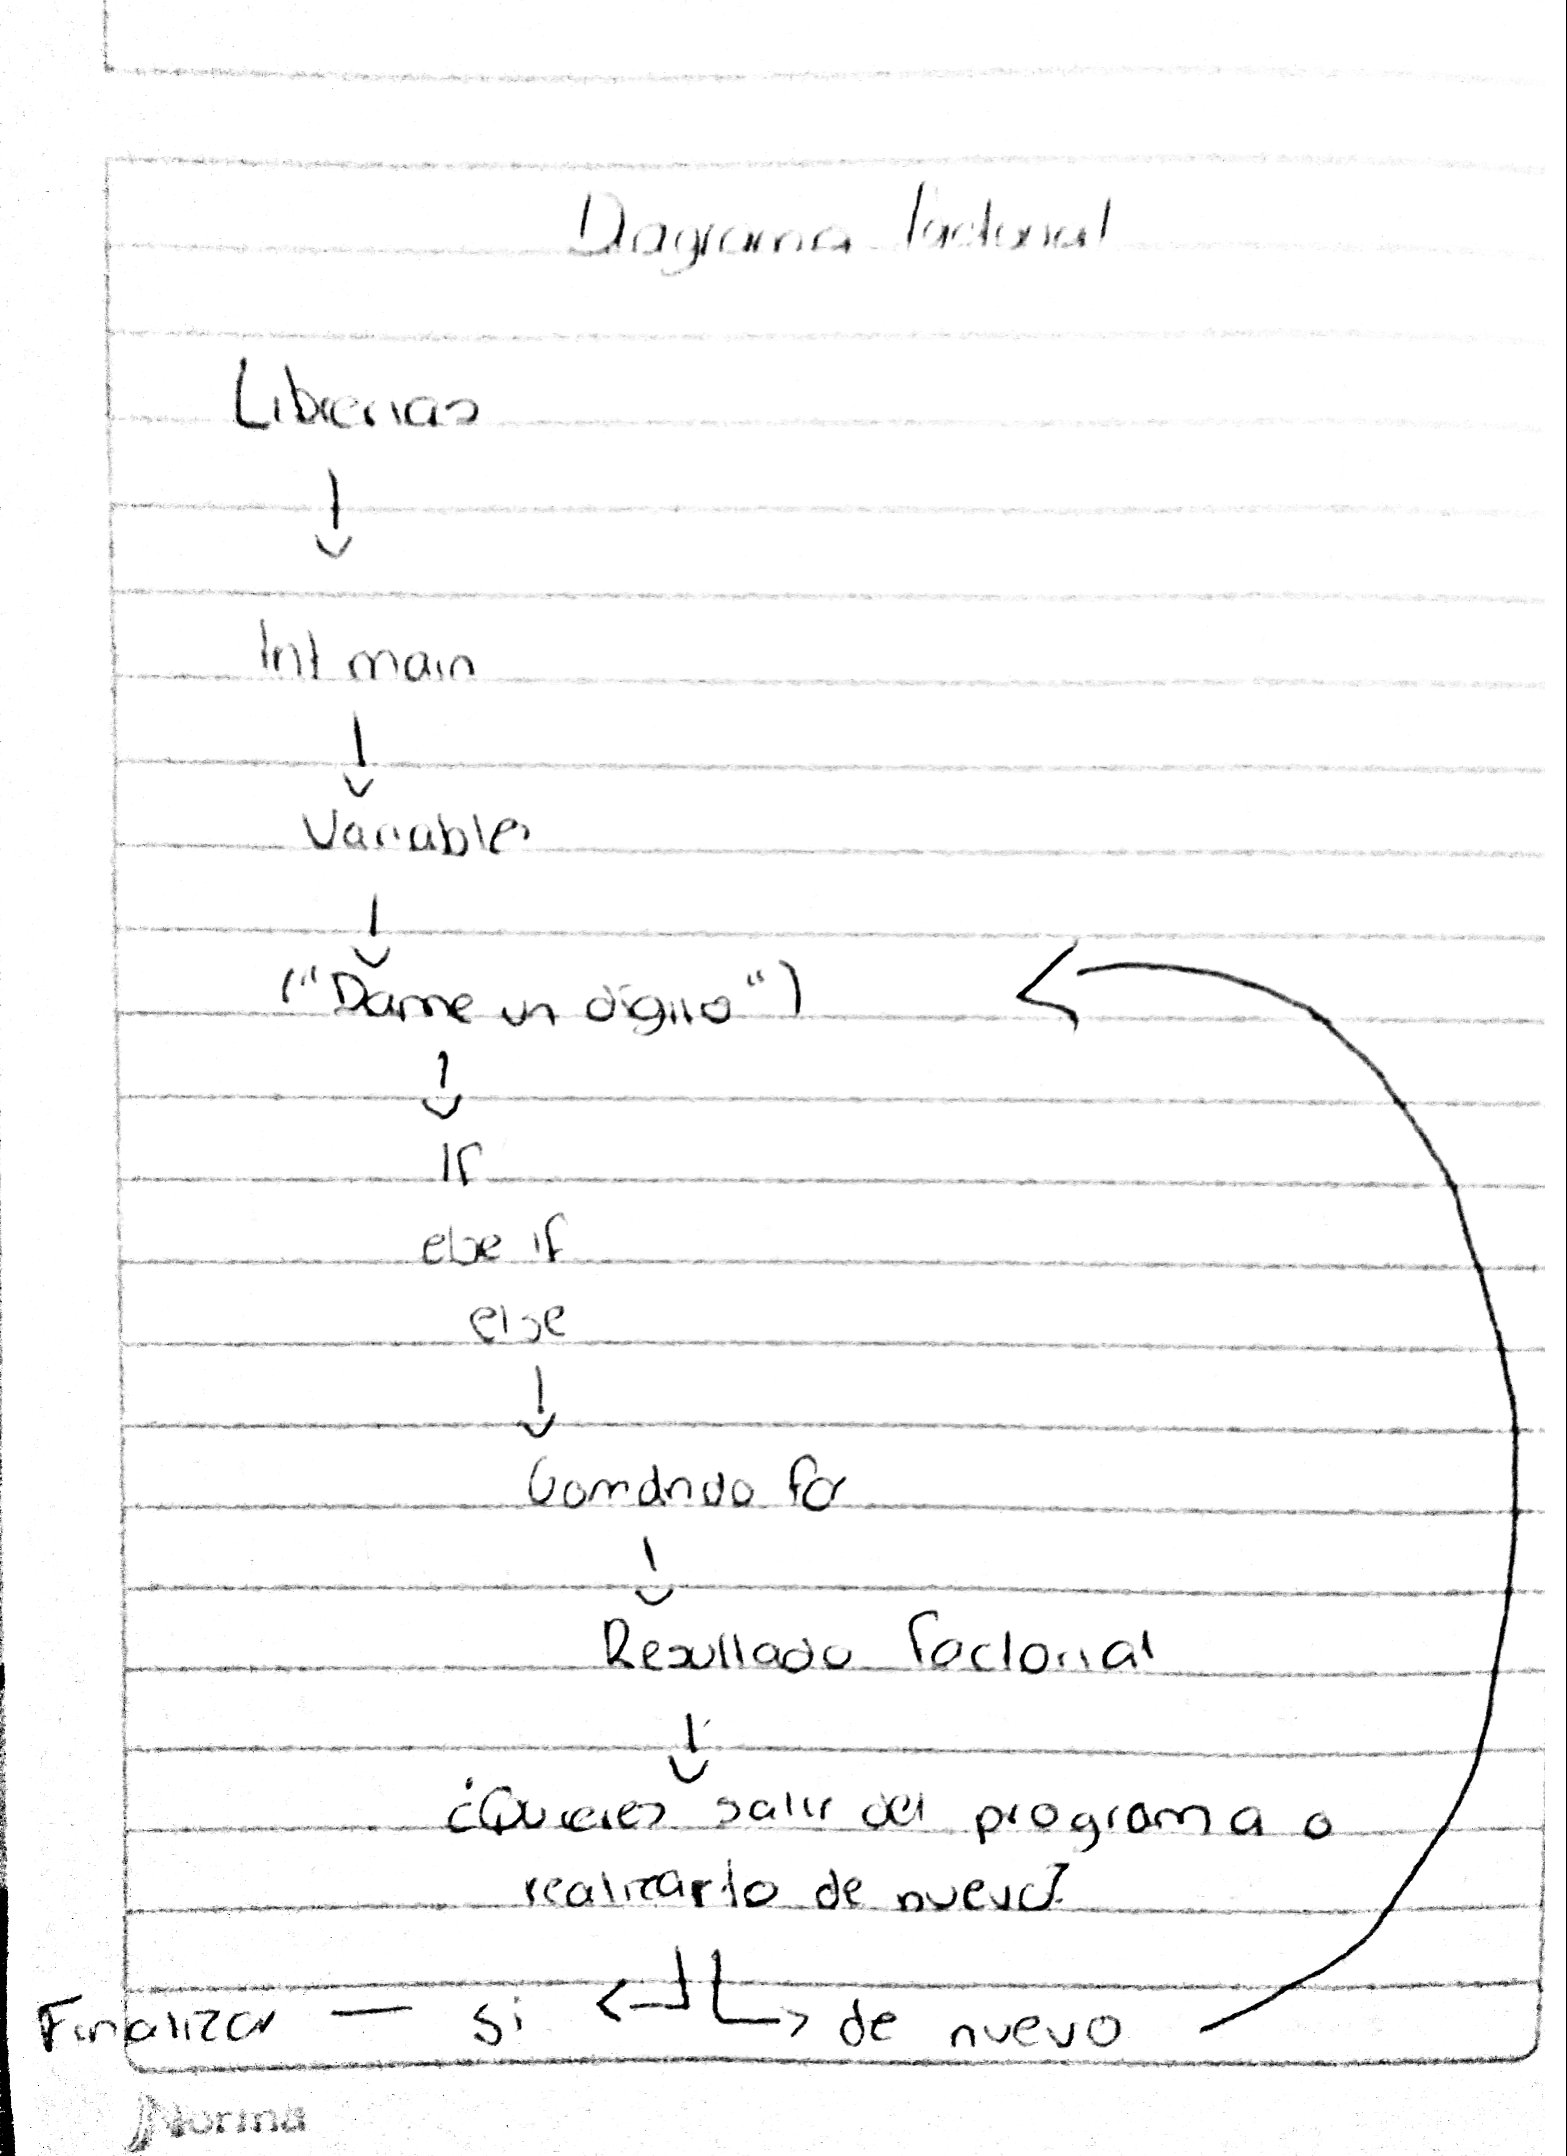 Diagrama factorial
Librerias
Int main
Variables
("Dame un digito")
If
else if
else
Comando for
Resultado factorial
¿Quieres salir del programa o
realizarlo de nuevo?
Finalizar — si de nuevo
Norma